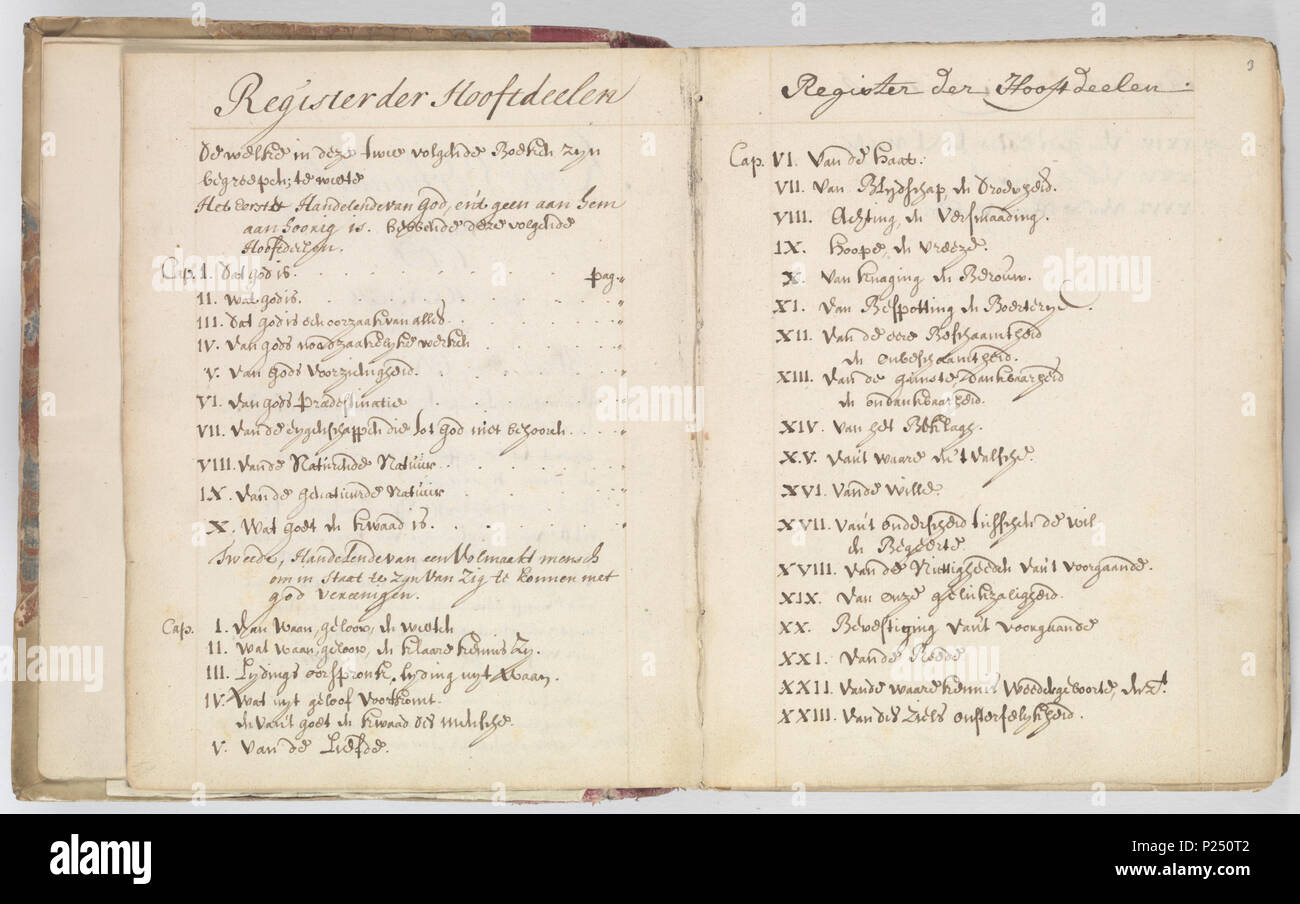 Register der Hooftdeelen
De welke in deze twee volgende Boeken zyn
begreepen; te weete
Het eerste Handelende van God, en 't geen aan hem
aanhoorig is. hebbende deze volgende
Hooftdeelen.
Cap. I. Dat god is. pag. "
II. Wat god is. "
III. Dat god is een oorzaak van alles. "
IV. Van gods noodzaakelyke werken "
V. Van Gods Voorzienigheid. "
VI. Van gods Prædestinatie "
VII. Van de eygenschappen die tot God niet behooren. "
VIII. Vande Naturende Natuur. "
IX. Van de genatuurde Natuur "
X. Wat goet en kwaad is. "
Tweede, Handelende van een Volmaakt mensch
om in Staat te zyn van zig te konnen met
god vereenigen.
Cap. I. Van Waan, geloov, en weeten
II. Wat waan, geloov, en klaare kennis zy.
III. Lydings oorspronk, lyding uyt waan.
IV. Wat uyt geloof voortkomt.
en van 't goet en kwaad des mensche.
V. Van de Liefde.
3
Register der Hooftdeelen.
Cap. VI. Van de haat.
VII. Van Blydschap, en Droevheid.
VIII. Achting, en Versmaading.
IX. Hoope, en Vreeze.
X. Van knaging en Berouw.
XI. Van Bespotting en Boerterye.
XII. Van de eere Beschaamtheid
en onbeschaamtheid.
XIII. Van de gunste, Dankbaarheid
en ondankbaarheid.
XIV. Van het Beklagh.
XV. Van't waare en 't valsche.
XVI. Vande Wille.
XVII. Van't onderscheid tusschen de wil
en Begeerte.
XVIII. Van de Nuttigheeden van't voorgaande.
XIX. Van onze gelukzaligheid.
XX. Bevestiging van't voorgaande
XXI. Vande Reede
XXII. Vande waare kennis Weedergeboorte, enz.
XXIII. Van des Ziels onsterfelykheid.
alamy
alamy
Image ID: P250T2
www.alamy.com